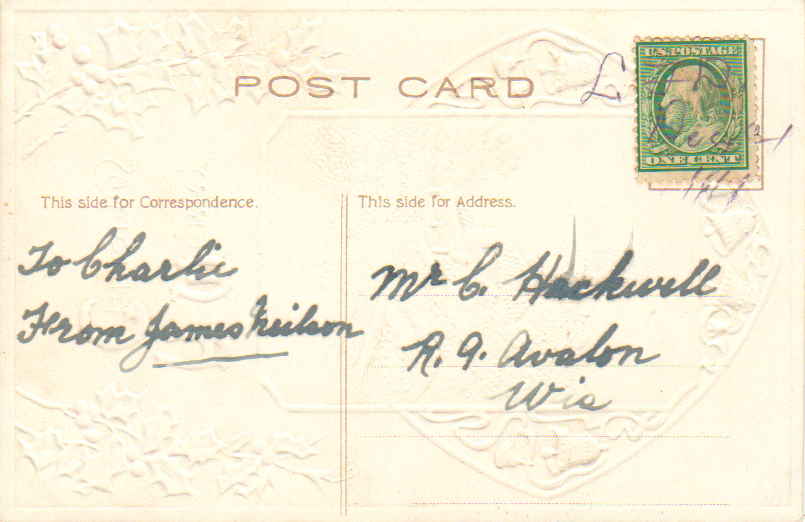 POST CARD
U.S. POSTAGE
ONE CENT
This side for Correspondence.
This side for Address.
To Charlie
From James Neilson
Mr C. Hackwell
R. 9. Avalon
Wis